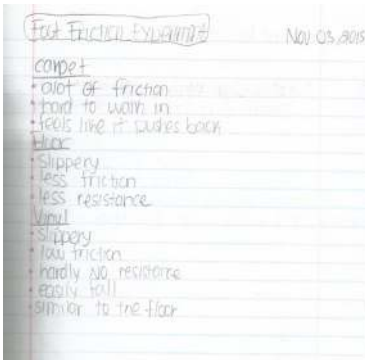 Foot Friction Experiment
Nov 03, 2015
carpet
• alot of friction
• hard to walk in
• feels like it pushes back
Floor
• Slippery
• less friction
• less resistance
Vinyl
• Slippery
• low friction
• hardly no resistance
• easily fall
• similar to the floor